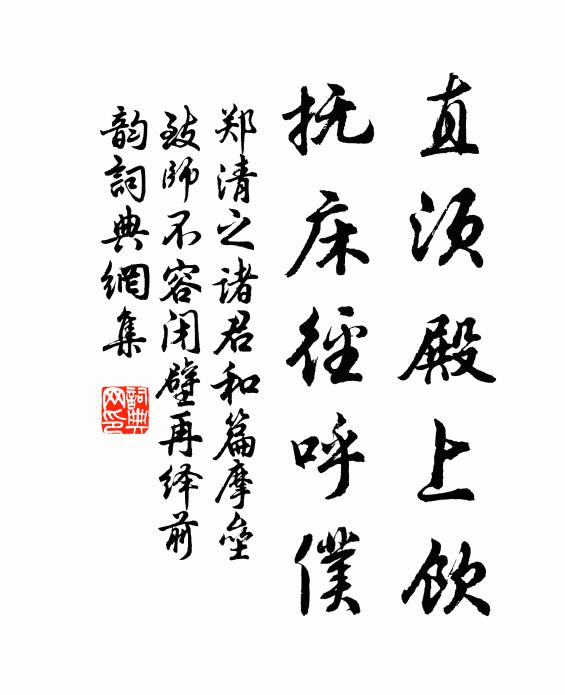 直须殿上饮
抚床径呼仆
郑清之诸君和篇摩垒
致师不容闭壁再绎前
韵词典网集
词典
网印